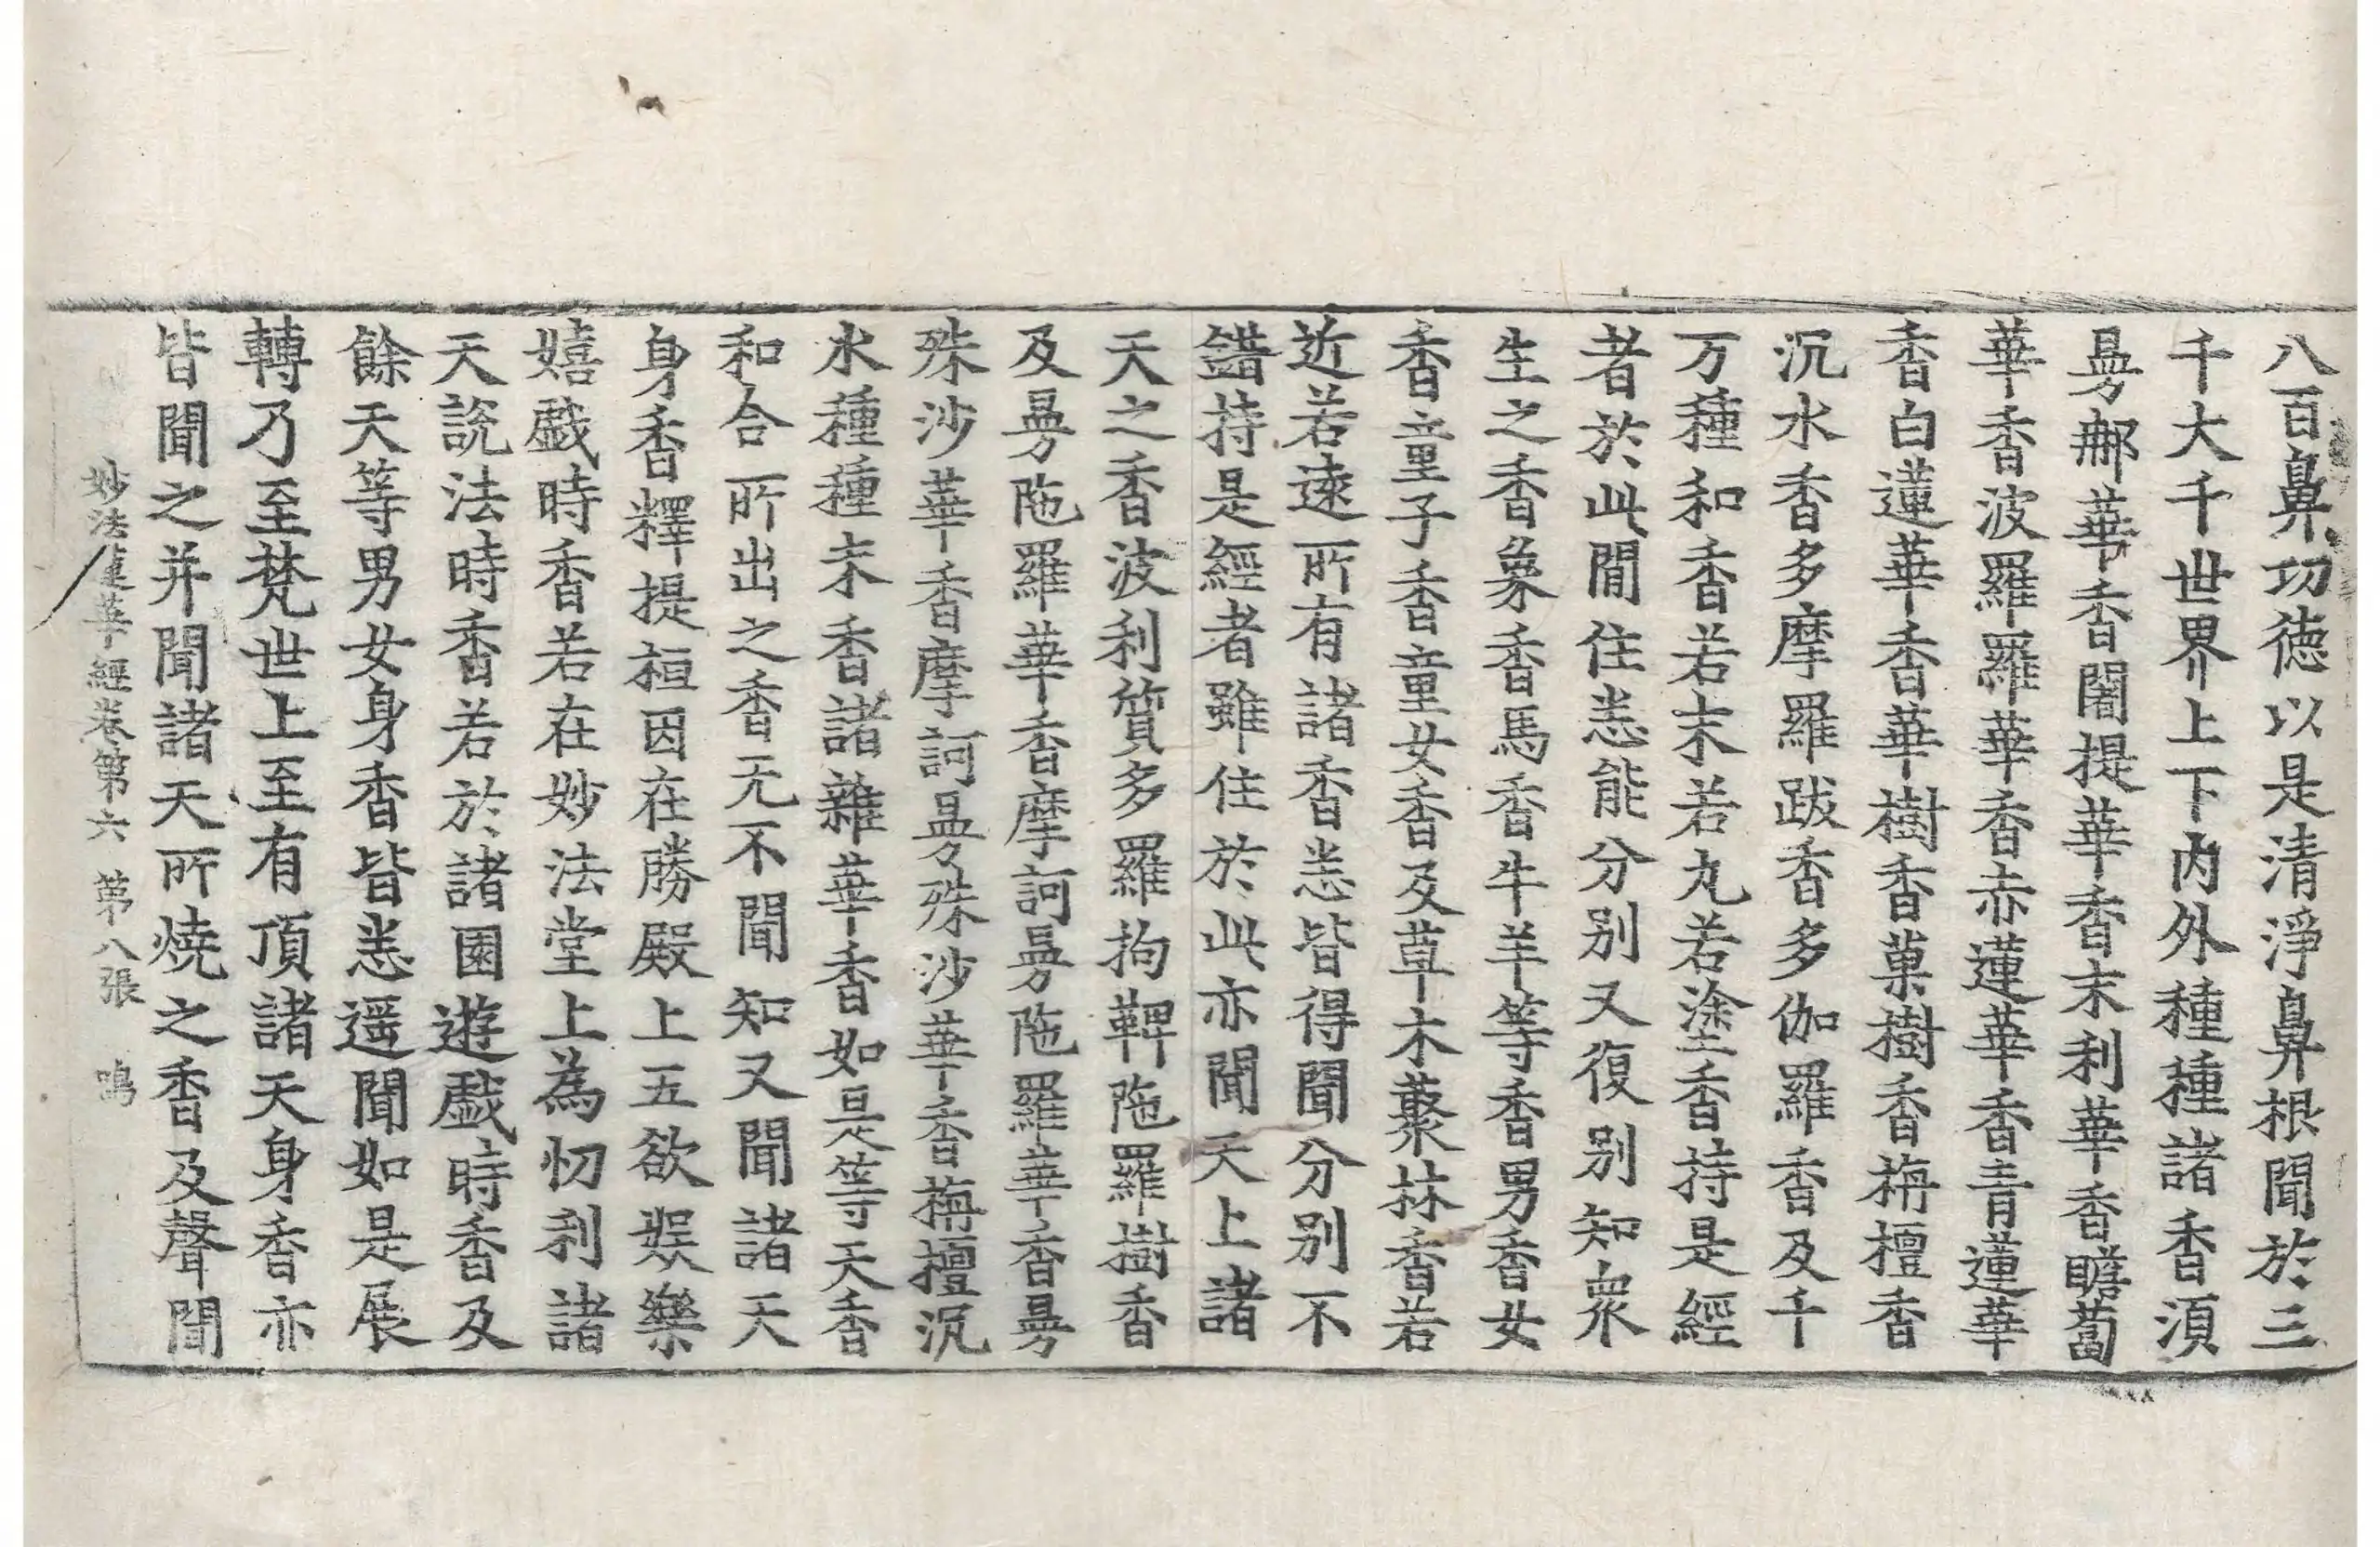 八百鼻功德以是清淨鼻根聞於三
千大千世界上下內外種種諸香湏
曼那華香闍提華香末利華香瞻蔔
華香波羅羅華香赤蓮華香青蓮華
香白蓮華香華樹香菓樹香栴檀香
沉水香多摩羅跋香多伽羅香及千
万種和香若末若丸若塗香持是經
者於此間住悉能分別又復別知衆
生之香象香馬香牛羊等香男香女
香童子香童女香及草木藂林香若
近若遠所有諸香悉皆得聞分別不
錯持是經者雖住於此亦聞天上諸
天之香波利質多羅拘鞞陁羅樹香
及曼陁羅華香摩訶曼陁羅華香曼
殊沙華香摩訶曼殊沙華香栴檀沉
水種種末香諸雜華香如是等天香
和合所出之香无不聞知又聞諸天
身香釋提桓因在勝殿上五欲娛樂
嬉戲時香若在妙法堂上為忉利諸
天說法時香若於諸園遊戲時香及
餘天等男女身香皆悉遥聞如是展
轉乃至梵世上至有頂諸天身香亦
皆聞之并聞諸天所燒之香及聲聞
妙法蓮華經卷第六 第八張 鳴